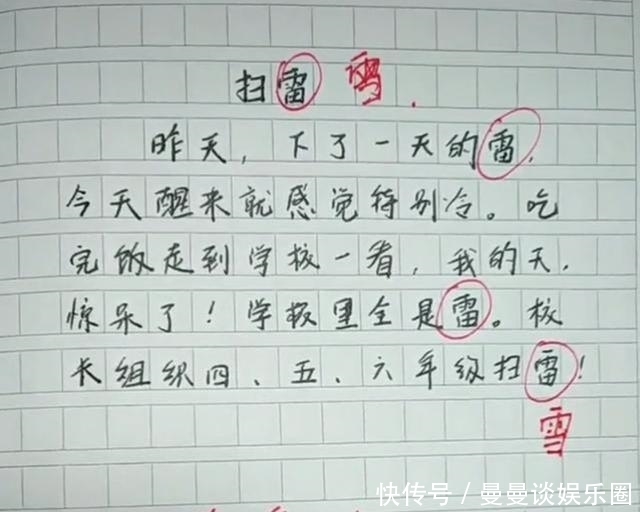 扫雷 雪
昨天，下了一天的雷，
今天醒来就感觉特别冷。吃
完饭走到学校一看，我的天，
惊呆了！学校里全是雷。校
长组织四、五、六年级扫雷！
雪
快传号／曼曼谈娱乐圈